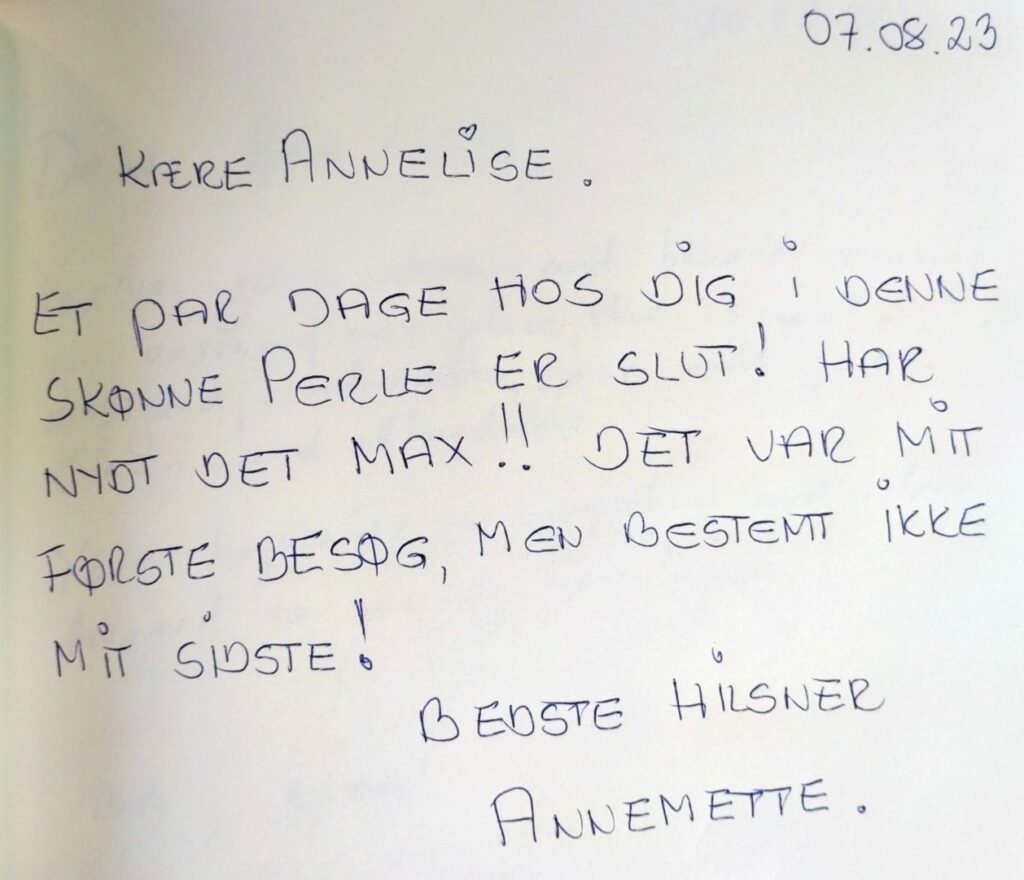 07.08.23
KÆRE ANNELISE.
ET PAR DAGE HOS DIG i DENNE
SKØNNE PERLE ER SLUT! HAR
NYDT DET MAX!! DET VAR MIT
FØRSTE BESØG, MEN BESTEMT IKKE
MIT SIDSTE!
BEDSTE HILSNER
ANNEMETTE.